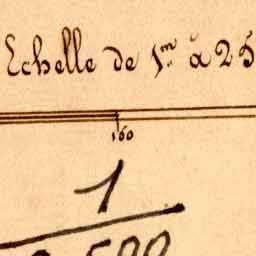 Echelle de 1m. à 25
160
1
500